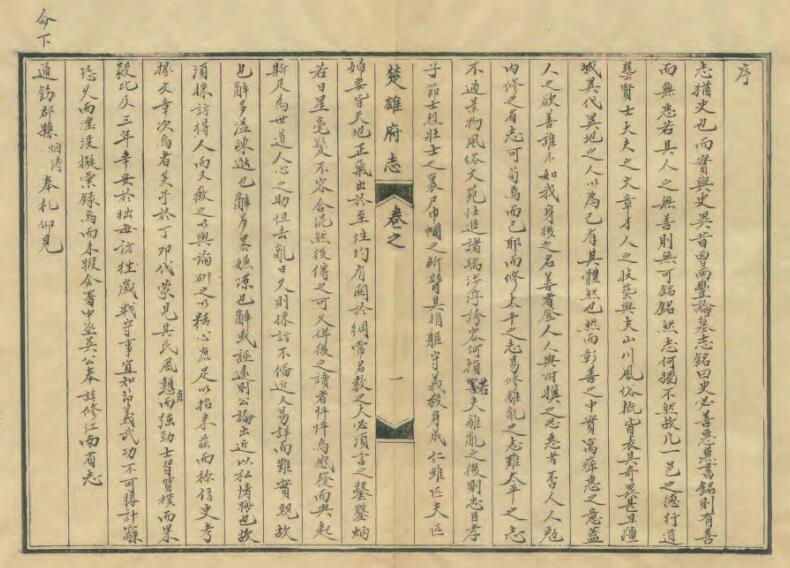 序
志猶史也而實與史異昔曾南豐論墓志銘曰史必善惡具書銘則有善
而無惡若其人之無善則無可銘銘然志何獨不然故凡一邑之德行道
藝賢士大夫之文章才人之技藝與夫山川風俗概皆表其奇異甚且隱
域異代異地之人以為己有其體然也然而彰善之中實寓癉惡之意蓋
人之欲善誰不如我身後之名善者登人人興附驥之思惡者否人人勉
內修之有志可苟焉而已耶而修太平之志易修離亂之志難太平之志
不過景物風俗文苑仕進諸端涉浮誇容何損諾夫離亂之後則忠臣孝
子節士烈壯士之裹尸巾幗之斷臂其捐軀守義殺身成仁雖匹夫匹
楚雄府志 卷之 一
婦要皆天地正氣出於至性均有關於綱常名教之人必須言之鑿鑿炳
若日星毫髮不容合混然後傳之可久俾後之讀者怦怦焉感發而興起
斯足為世道人心之助但去亂日久則採訪不備近又易詳而難實親故
也辭多溢疎逖也辭多畧嫌也辭或誣遠則公論出近以私情也故
須採訪得人而又之以輿論研之以精心庶足以招來茲而稱信史考
據文章次焉者矣予於丁卯代篆見其民風憨直而强勁士習質樸而果
毅比及三年幸安於拙每訪往歲戰守事宜如節義武功不可勝計竊
恐久而湮沒擬彙錄焉而未暇會署中丞吴公奉請修江南省志
命下
通飭郡縣炳濤奉札仰見